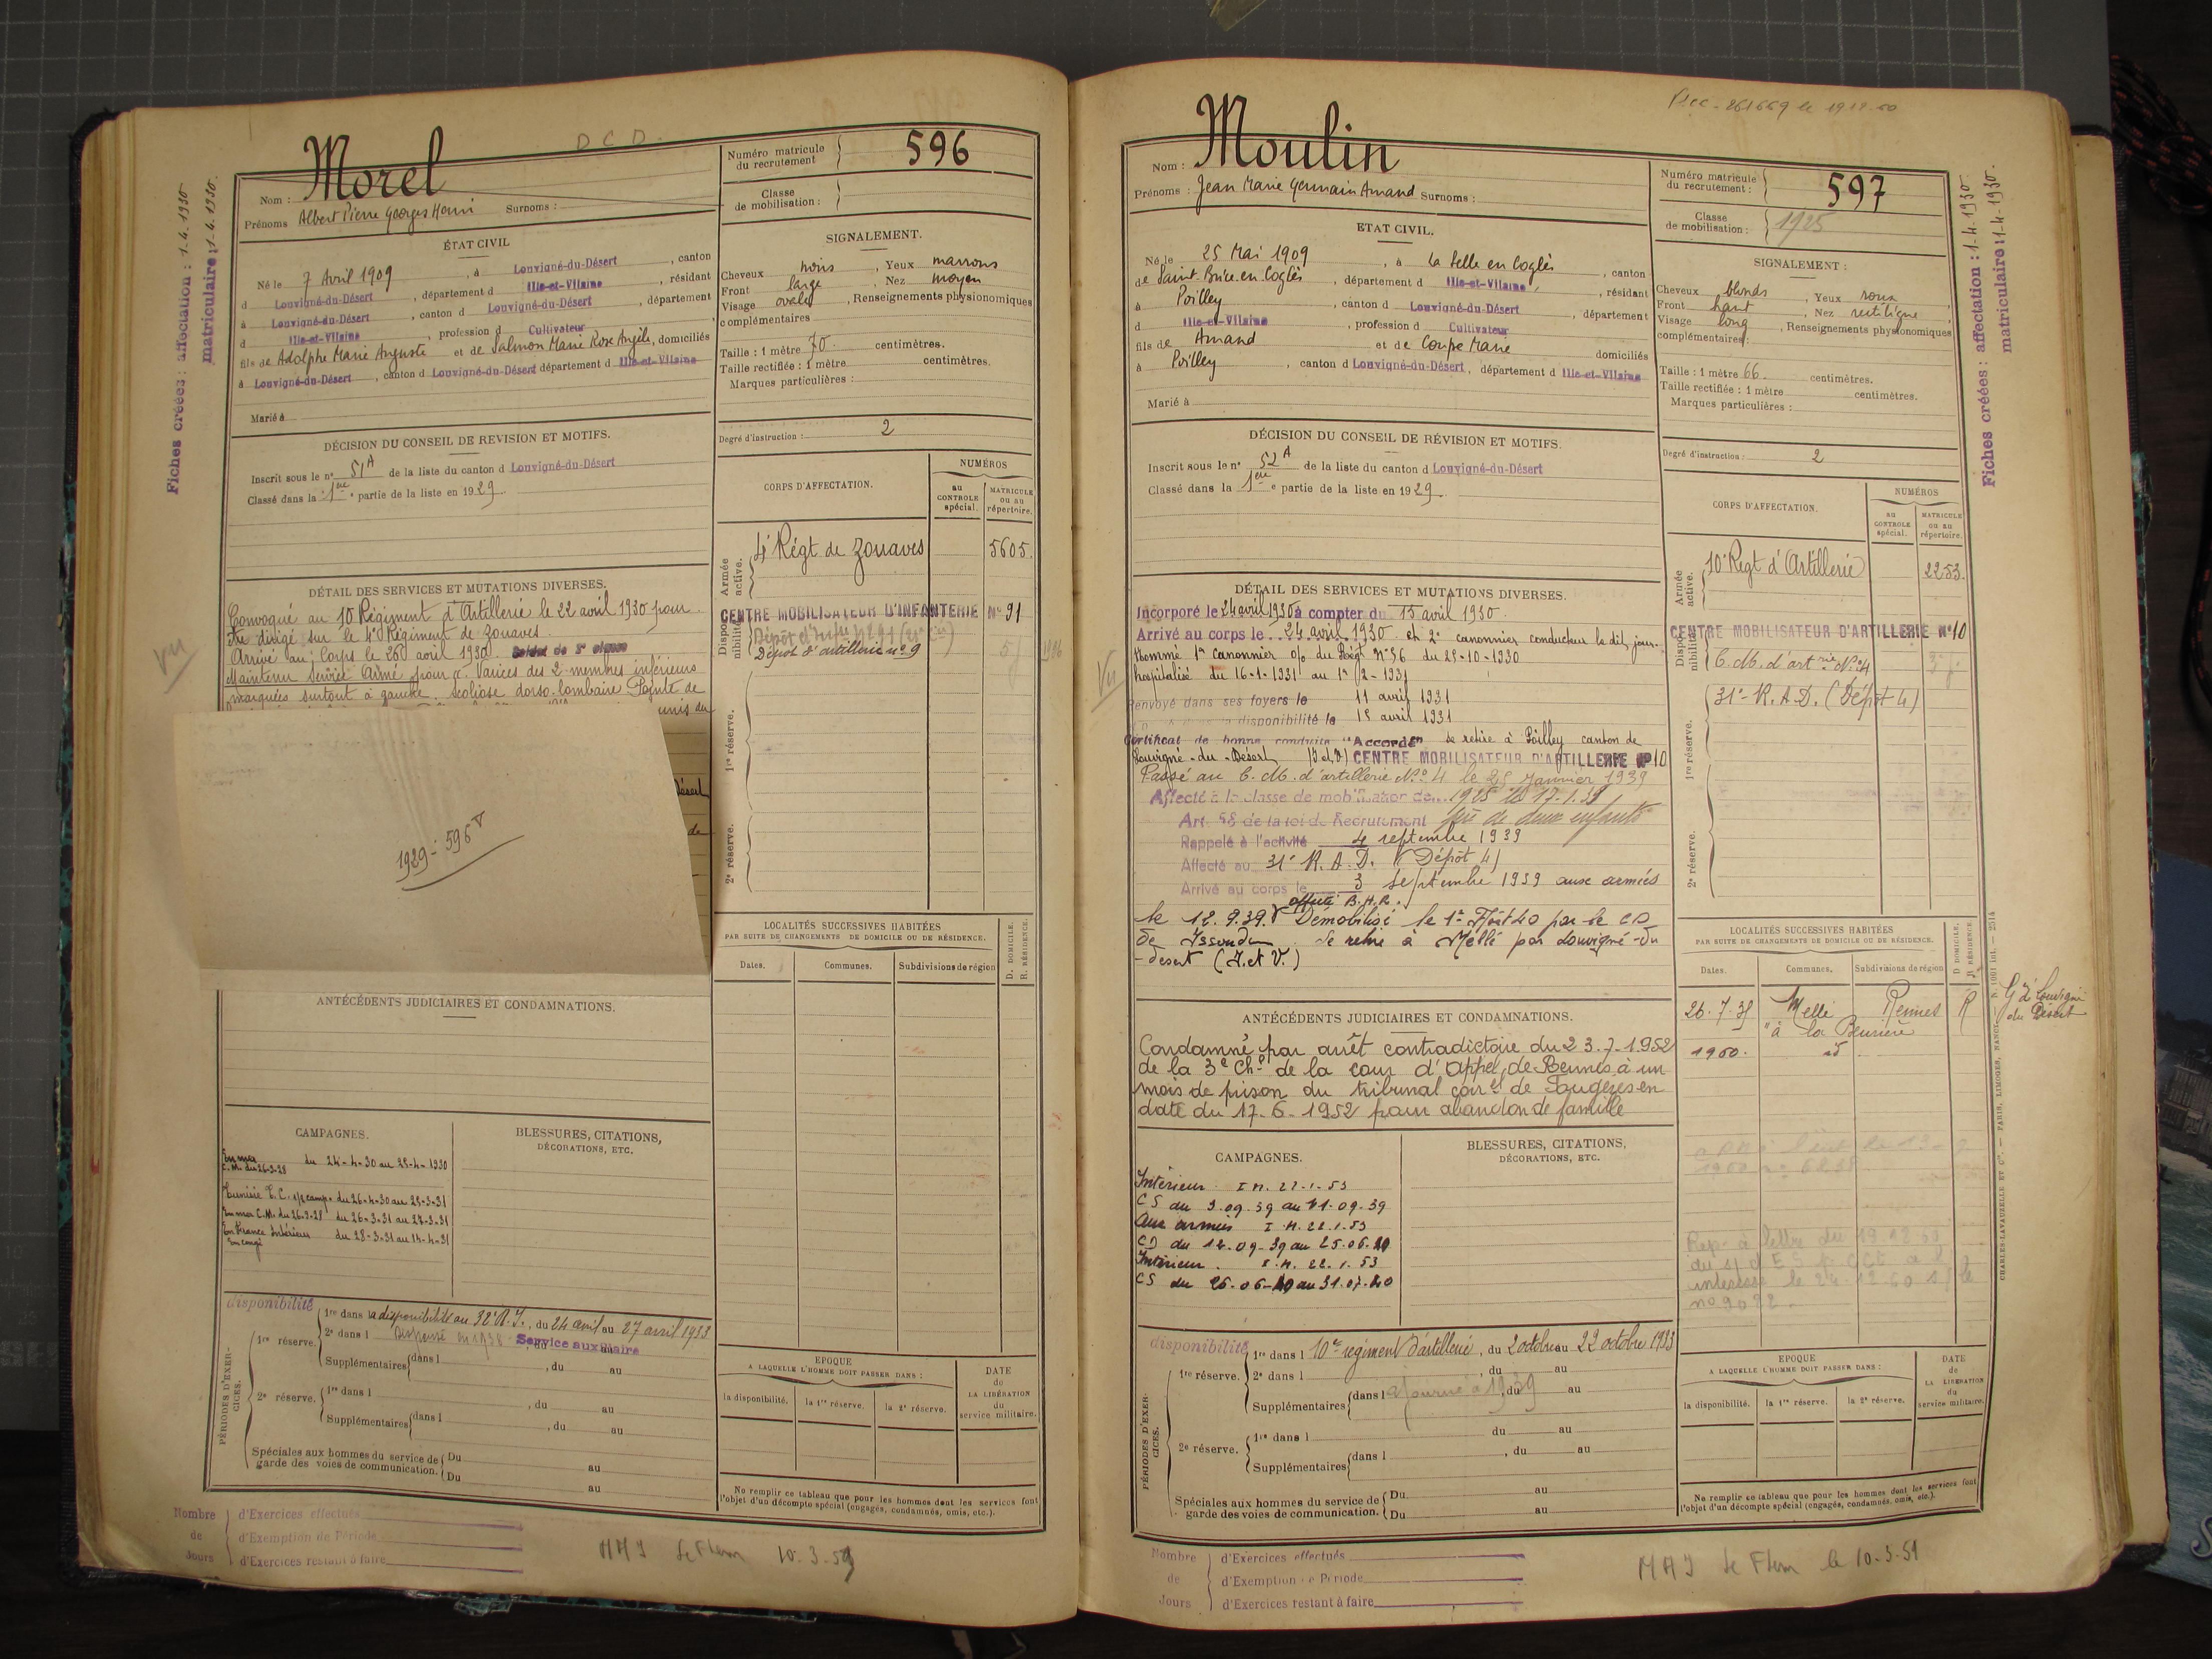 D C D.
Nom : Morel
Prénoms Albert Pierre Georges Henri Surnoms :
Numéro matricule du recrutement 596
Classe de mobilisation :
ÉTAT CIVIL
Né le 7 Avril 1909, à Louvigné-du-Désert, canton
d Louvigné-du-Désert, département d Ille-et-Vilaine, résidant
à Louvigné-du-Désert, canton d Louvigné-du-Désert, département
d Ille-et-Vilaine, profession d Cultivateur,
fils de Adolphe Marie Auguste et de Salmon Marie Rose Angèle, domiciliés
à Louvigné-du-Désert, canton d Louvigné-du-Désert département d Ille-et-Vilaine
Marié à
SIGNALEMENT.
Cheveux noirs, Yeux marrons
Front large, Nez moyen
Visage ovale, Renseignements physionomiques
complémentaires
Taille : 1 mètre 70 centimètres.
Taille rectifiée : 1 mètre centimètres.
Marques particulières :
Degré d'instruction : 2
Fiches créées : affectation : 1.4.1930
matriculaire : 1-4.1930.
DÉCISION DU CONSEIL DE REVISION ET MOTIFS.
Inscrit sous le n° 51A de la liste du canton d Louvigné-du-Désert
Classé dans la 1ère partie de la liste en 1929.
CORPS D'AFFECTATION.
NUMÉROS
au CONTROLE spécial.
MATRICULE ou au répertoire.
Armée active.
4e Régt de Zouaves 5605.
CENTRE MOBILISATEUR D'INFANTERIE N° 91
Disponibilité
Dépôt d'artillerie n° 9
1re réserve.
2e réserve.
DÉTAIL DES SERVICES ET MUTATIONS DIVERSES.
Convoqué au 10 Régiment d'Artillerie le 22 avril 1930 pour
être dirigé sur le 4e Régiment de Zouaves.
Arrivé au Corps le 26 avril 1930. Soldat de 2e classe
Maintenu Service Armé pour Varices des 2 membres inférieurs
marquées surtout à gauche. Scoliose dorso-lombaire Pointe de
Vu
1929 - 596 V
ANTÉCÉDENTS JUDICIAIRES ET CONDAMNATIONS.
LOCALITÉS SUCCESSIVES HABITÉES
PAR SUITE DE CHANGEMENTS DE DOMICILE OU DE RÉSIDENCE.
D. DOMICILE. R. RÉSIDENCE.
Dates. Communes. Subdivisions de région
CAMPAGNES.
En mer
C.M. du 26-3-28 du 24-4-30 au 25-4-1930
Tunisie T.C. s/p camp. du 26-4-30 au 25-3-31
En mer C.M. du 26-3-28 du 26-3-31 au 27-3-31
En France Intérieur du 28-3-31 au 14-4-31
En congé
BLESSURES, CITATIONS,
DÉCORATIONS, ETC.
PÉRIODES D'EXERCICES.
disponibilité
1re réserve.
1re dans la disponibilité au 32e R.I., du 24 avril au 27 avril 1933
2e dans l Dispensé en 1938 Service auxiliaire
Supplémentaires dans l, du au
2e réserve.
1re dans l, du au
Supplémentaires dans l, du au
Spéciales aux hommes du service de garde des voies de communication.
Du au
Du au
EPOQUE
A LAQUELLE L'HOMME DOIT PASSER DANS :
la disponibilité. la 1re réserve. la 2e réserve.
DATE de LA LIBÉRATION du service militaire.
Ne remplir ce tableau que pour les hommes dont les services font
l'objet d'un décompte spécial (engagés, condamnés, omis, etc.).
Nombre de Jours
d'Exercices effectués
d'Exemption de Période
d'Exercices restant à faire
MAJ 10-3-59
Nom : Moulin
Prénoms : Jean Marie Germain Amand Surnoms :
Numéro matricule du recrutement : 597
Classe de mobilisation : 1925
ETAT CIVIL.
Né le 25 Mai 1909, à la Selle en Coglès, canton
de Saint Brice en Coglès, département d Ille-et-Vilaine, résidant
à Poilley, canton d Louvigné-du-Désert, département
d Ille-et-Vilaine, profession d Cultivateur
fils de Amand et de Coupé Marie domiciliés
à Poilley, canton d Louvigné-du-Désert, département d Ille-et-Vilaine
Marié à
SIGNALEMENT :
Cheveux blonds, Yeux roux,
Front haut, Nez rectiligne
Visage long, Renseignements physionomiques
complémentaires :
Taille : 1 mètre 66 centimètres.
Taille rectifiée : 1 mètre centimètres.
Marques particulières :
Degré d'instruction : 2
Fiches créées : affectation : 1-4.1930.
matriculaire : 1-4-1930.
DÉCISION DU CONSEIL DE RÉVISION ET MOTIFS.
Inscrit sous le n° 52A de la liste du canton d Louvigné-du-Désert
Classé dans la 1ère partie de la liste en 1929.
CORPS D'AFFECTATION.
NUMÉROS
au CONTROLE spécial.
MATRICULE ou au répertoire.
Armée active.
10e Régt d'Artillerie 2253.
CENTRE MOBILISATEUR D'ARTILLERIE N°10
Disponibilité
C.M. d'artrie N°4
31e R.A.D. (Dépôt 4)
1re réserve.
2e réserve.
DÉTAIL DES SERVICES ET MUTATIONS DIVERSES.
Incorporé le 24 avril 1930 à compter du 15 avril 1930.
Arrivé au corps le 24 avril 1930 et 2e canonnier conducteur le dit jour.
Nommé 1er canonnier o/o du Régt N°56 du 25-10-1930
hospitalisé du 16-1-1931 au 1er/2-1931
Renvoyé dans ses foyers le 11 avril 1931
la disponibilité le 15 avril 1931
Certificat de bonne conduite "Accordé" se retire à Poilley canton de
Louvigné-du-Désert (I et V) CENTRE MOBILISATEUR D'ARTILLERIE N°10
Passé au C.M. d'artillerie N°4 le 25 Janvier 1939
Affecté à la classe de mobilisation de 1925 le 17.1.39
Art. 58 de la loi de Recrutement père de deux enfants
Rappelé à l'activité 4 septembre 1939
Affecté au 31e R.A.D. (Dépôt 4)
Arrivé au corps le 3 septembre 1939 aux armées
affecté B.H.R.
le 12.9.39. Démobilisé le 1er Août 40 par le CD
de Issoudun. Se retire à Mellé par Louvigné-du
-désert (I. et V.)
Vu
ANTÉCÉDENTS JUDICIAIRES ET CONDAMNATIONS.
Condamné par arrêt contradictoire du 23.7.1952
de la 3e Ch. de la cour d'Appel de Rennes à un
mois de prison du tribunal corel de Fougères en
date du 17-6-1952 pour abandon de famille
LOCALITÉS SUCCESSIVES HABITÉES
PAR SUITE DE CHANGEMENTS DE DOMICILE OU DE RÉSIDENCE.
D. DOMICILE. R. RÉSIDENCE.
Dates. Communes. Subdivisions de région
26.7.35 Mellé Rennes R
"à la Beurière
1960. id
Gie Louvigné
du Désert
CAMPAGNES.
Intérieur I M. 22.1.53
CS du 3.09.39 au 11.09.39
Aux armées I M. 22.1.53
CD du 12.09-39 au 25.06.40
Intérieur. I.M. 22.1.53
CS du 26.06-40 au 31.07.40
BLESSURES, CITATIONS,
DÉCORATIONS, ETC.
Rep. à lettre du 19.12.60
intéressé le 24.12.60
PÉRIODES D'EXERCICES.
disponibilité
1re réserve.
1re dans l 10me régiment d'artillerie, du 2 octobre au 22 octobre 1933
2e dans l, du au
Supplémentaires dans l ajourné à 1939 du au
2e réserve.
1re dans l du au
Supplémentaires dans l, du au
Spéciales aux hommes du service de garde des voies de communication.
Du au
Du au
EPOQUE
A LAQUELLE L'HOMME DOIT PASSER DANS :
la disponibilité. la 1re réserve. la 2e réserve.
DATE de LA LIBÉRATION du service militaire.
Ne remplir ce tableau que pour les hommes dont les services font
l'objet d'un décompte spécial (engagés, condamnés, omis, etc.).
CHARLES-LAVAUZELLE ET Cie. — PARIS, LIMOGES, NANCY
Nombre de Jours
d'Exercices effectués
d'Exemption de Période
d'Exercices restant à faire
MAJ le 10-3-59